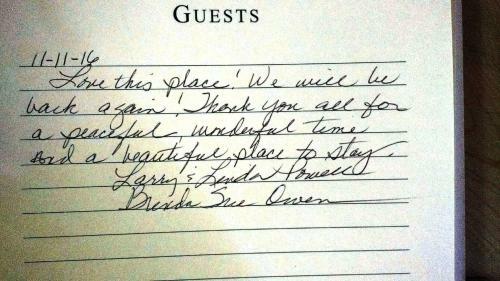 GUESTS
11-11-16
Love this place! We will be
back again! Thank you all for
a peaceful, wonderful time
and a beautiful place to stay.
Larry & Linda Powell
Brenda Sue Owen